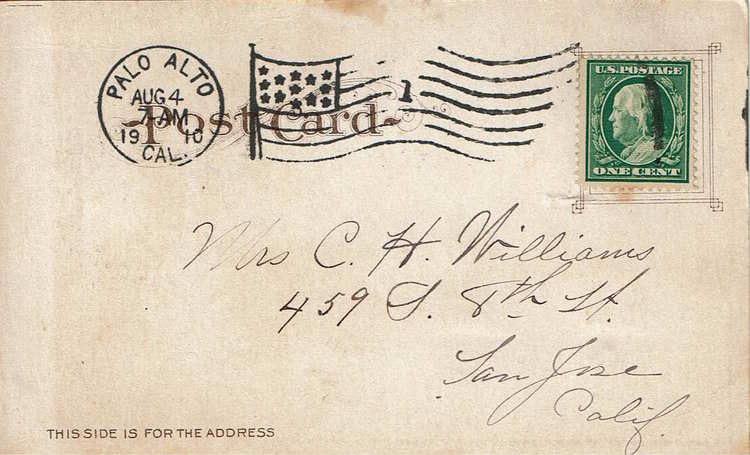 PALO ALTO
AUG 4
7 AM
1910
CAL.
1
Post Card
U.S. POSTAGE
ONE CENT
Mrs C. H. Williams
459 S. 8th St.
San Jose
Calif.
THIS SIDE IS FOR THE ADDRESS